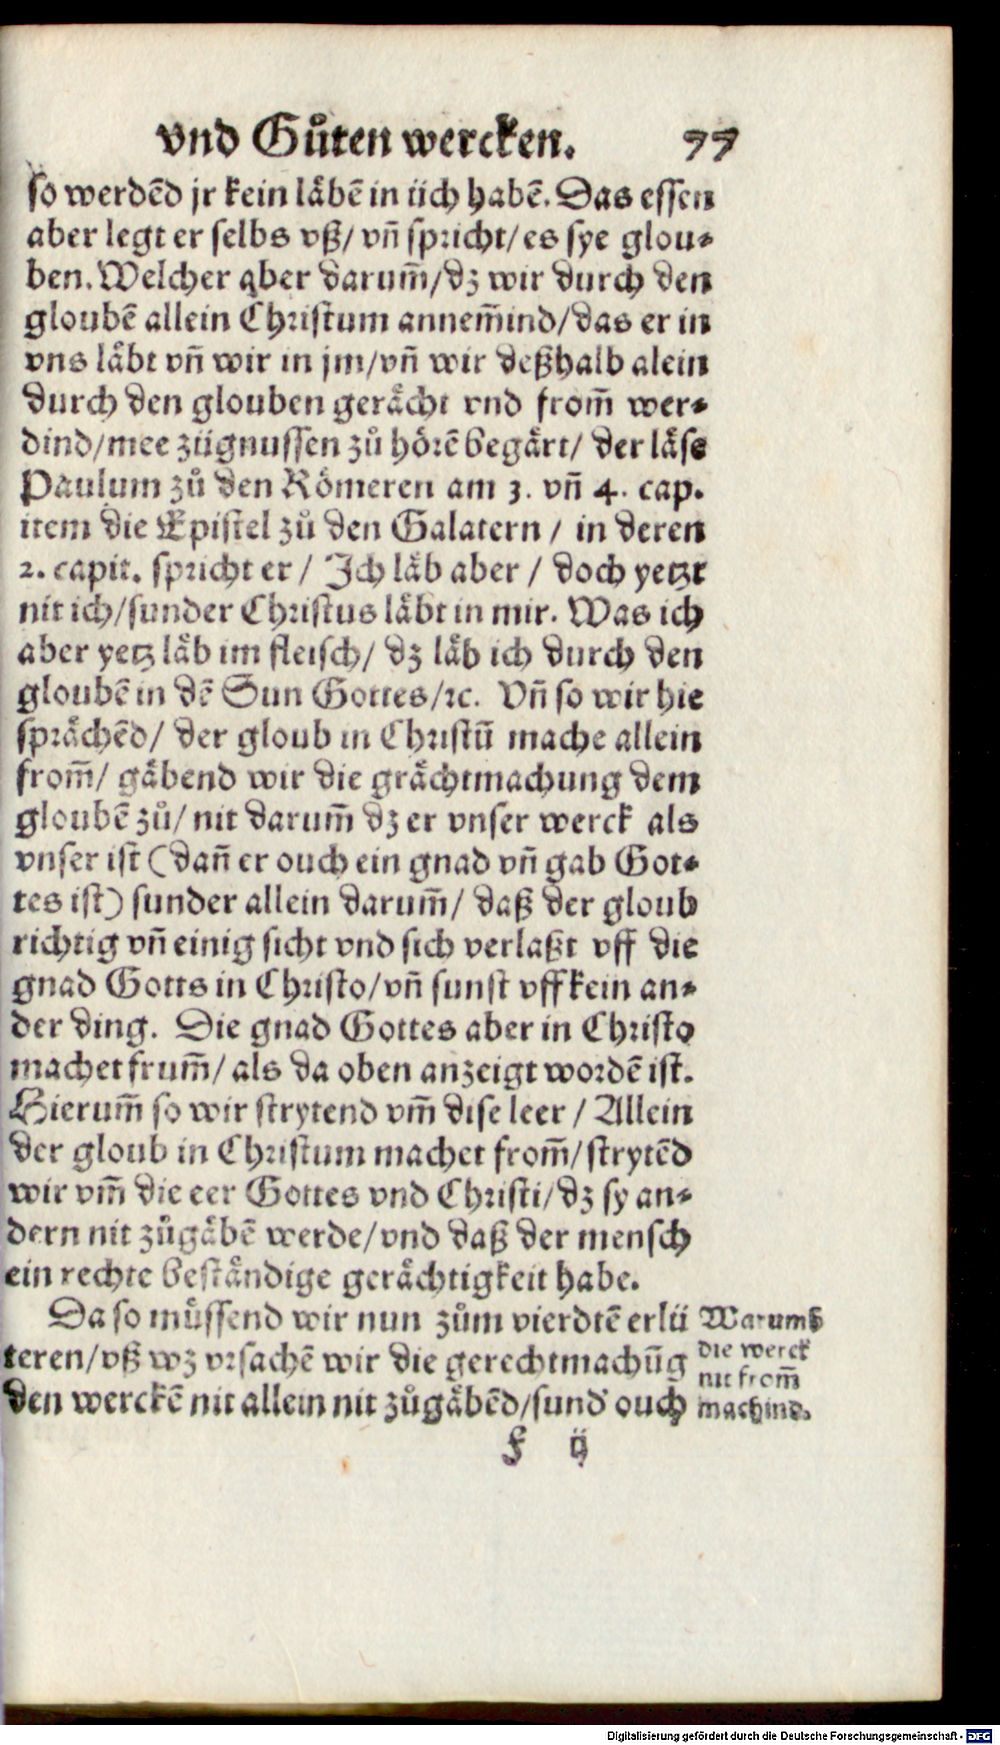 vnd Gůten wercken. 77
so werdēd jr kein läbē in üch habē. Das essen
aber legt er selbs vß/ vñ spricht/ es sye glou⸗
ben. Welcher aber darum̃/ dz wir durch den
gloubē allein Christum annem̃ind/ das er in
vns läbt vñ wir in jm/ vñ wir deßhalb alein
durch den glouben gerächt vnd from̃ wer⸗
dind/ mee zügnussen zů hörē begärt/ der läse
Paulum zů den Römeren am 3. vñ 4. cap.
item die Epistel zů den Galatern / in deren
2. capit. spricht er / Ich läb aber / doch yetzt
nit ich/ sunder Christus läbt in mir. Was ich
aber yetz läb im fleisch/ dz läb ich durch den
gloubē in dē Sun Gottes/ ꝛc. Vñ so wir hie
sprächēd/ der gloub in Christū mache allein
from̃/ gäbend wir die grächtmachung dem
gloubē zů/ nit darum̃ dz er vnser werck als
vnser ist (dañ er ouch ein gnad vñ gab Got⸗
tes ist) sunder allein darum̃/ daß der gloub
richtig vñ einig sicht vnd sich verlaßt vff die
gnad Gotts in Christo/ vñ sunst vff kein an⸗
der ding. Die gnad Gottes aber in Christo
machet frum̃/ als da oben anzeigt wordē ist.
Hierum̃ so wir strytend vm̃ dise leer / Allein
der gloub in Christum machet from̃/ strytēd
wir vm̃ die eer Gottes vnd Christi/ dz sy an⸗
dern nit zůgäbē werde/ vnd daß der mensch
ein rechte beständige gerächtigkeit habe.
Da so müssend wir nun zům vierdtē erlü
teren/ vß wz vrsachē wir die gerechtmachūg
den werckē nit allein nit zůgäbēd/ sund' ouch
Warumb
die werck
nit from̃
machind.
k ij
Digitalisierung gefördert durch die Deutsche Forschungsgemeinschaft - DFG